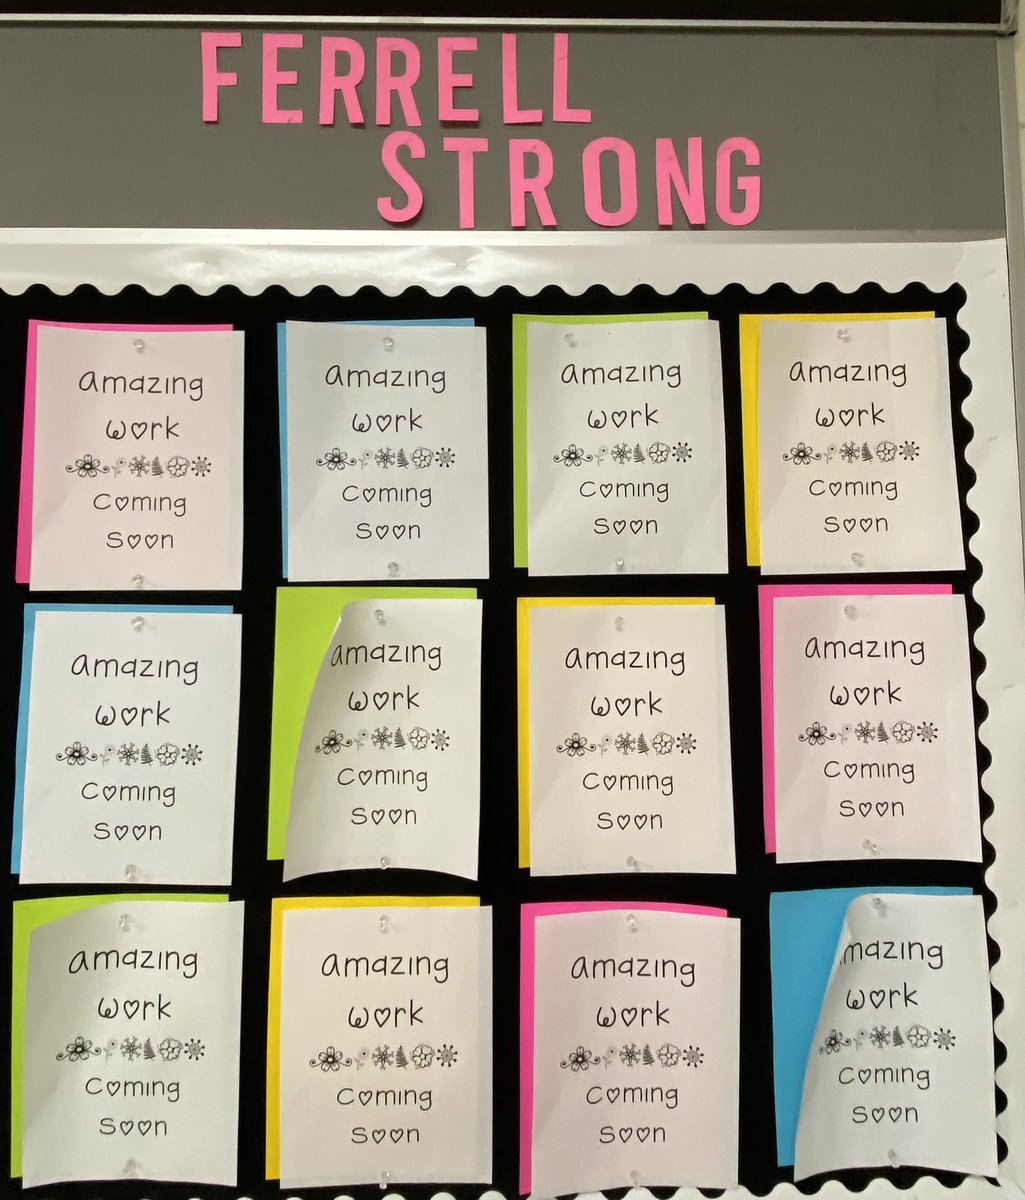 FERRELL
STRONG
amazing
work
Coming
Soon
amazing
work
Coming
Soon
amazing
work
Coming
Soon
amazing
work
Coming
Soon
amazing
work
Coming
Soon
amazing
work
Coming
Soon
amazing
work
Coming
Soon
amazing
work
Coming
Soon
amazing
work
Coming
Soon
amazing
work
Coming
Soon
amazing
work
Coming
Soon
mazing
work
Coming
Soon